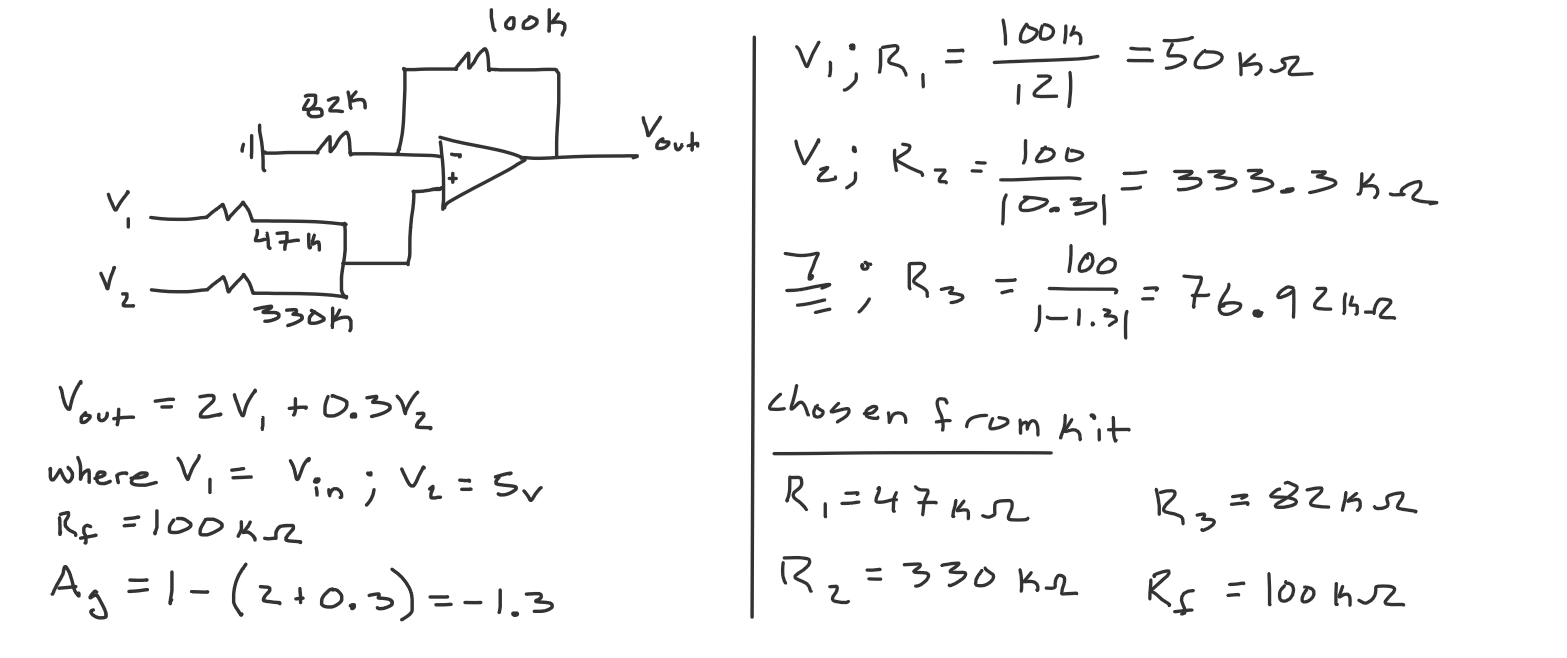 100K
82K
Vout
-
+
V1
47K
V2
330K
Vout = 2V1 + 0.3V2
where V1 = Vin ; V2 = 5v
Rf = 100 KΩ
Ag = 1 - (2+0.3) = -1.3
V1 ; R1 = 100K / |2| = 50 KΩ
V2 ; R2 = 100 / |0.3| = 333.3 KΩ
⏚ ; R3 = 100 / |-1.3| = 76.92 KΩ
chosen from kit
R1 = 47 KΩ R3 = 82 KΩ
R2 = 330 KΩ Rf = 100 KΩ